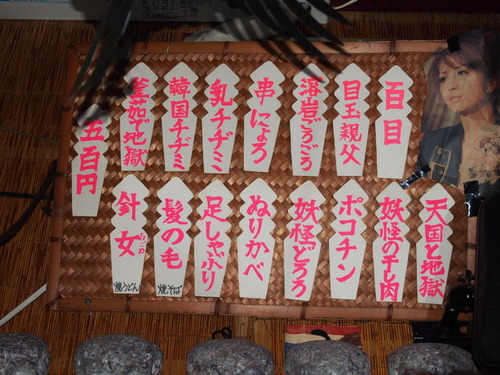 百目
目玉親父
溶岩ごうごう
串にょろ
乳チヂミ
韓国チヂミ
釜茹で地獄
五百円
天国と地獄
妖怪の干し肉
ポコチン
妖怪どろろ
ぬりかべ
足しゃぶり
髪の毛
焼そば
針女
焼うどん